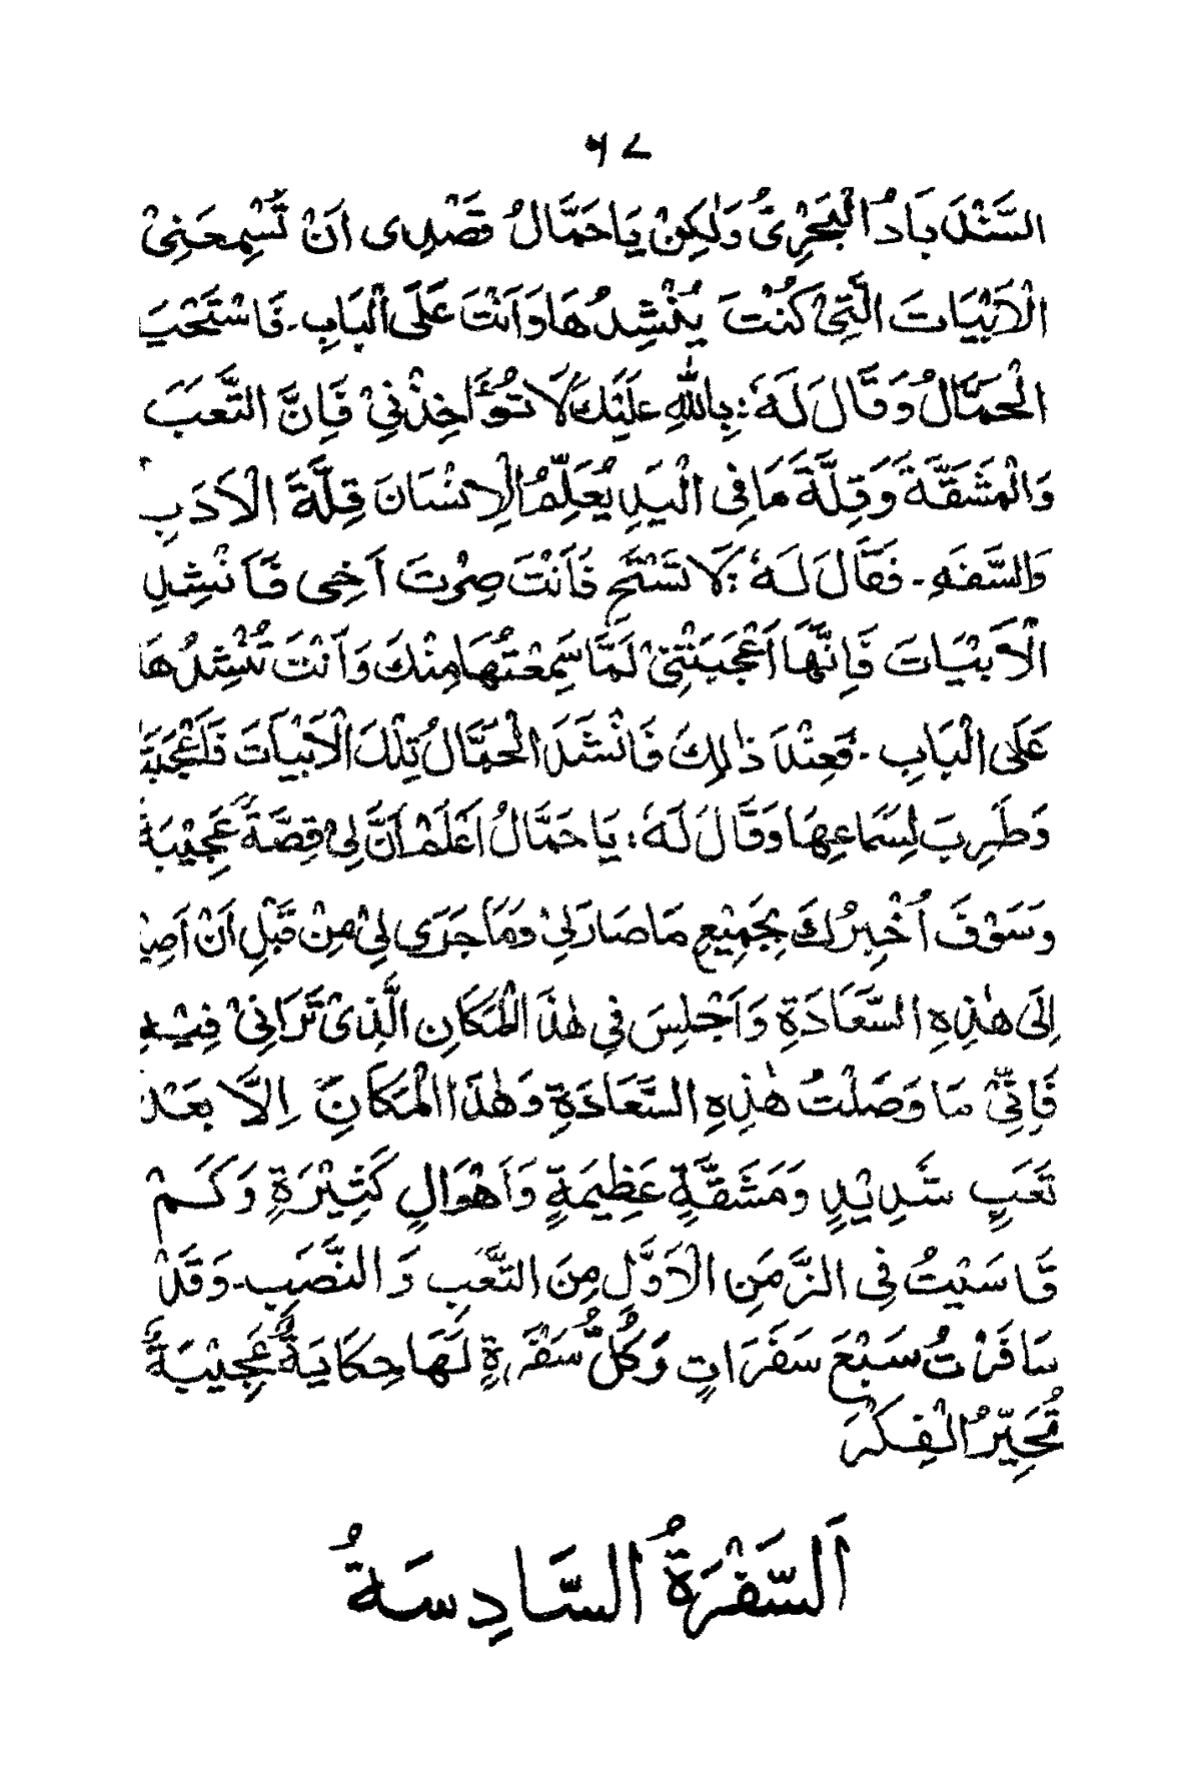 ٦٧
السَّنْدَ بَادُ الْبَحْرِيُّ وَلٰكِنْ يَا حَمَّالُ قَصْدِى اَنْ تُسْمِعَنِيْ
الْاَبْيَاتَ الَّتِيْ كُنْتَ يُنْشِدُهَا وَاَنْتَ عَلَى الْبَابِ - فَاسْتَحْيَ
الْحَمَّالُ وَقَالَ لَهٗ: بِاللّٰهِ عَلَيْكَ لَا تُؤَاخِذْنِيْ فَاِنَّ التَّعَبَ
وَالْمَشَقَّةَ وَقِلَّةَ مَا فِى الْيَدِ يُعَلِّمُ الْاِنْسَانَ قِلَّةَ الْاَدَبِ
وَالسَّفَهِ - فَقَالَ لَهٗ: لَا تَسْتَحِ فَاَنْتَ صِرْتَ اَخِى فَاَنْشِدِ
الْاَبْيَاتَ فَاِنَّهَا اَعْجَبَتْنِيْ لَمَّا سَمِعْتُهَا مِنْكَ وَاَنْتَ تُنْشِدُهَا
عَلَى الْبَابِ - فَعِنْدَ ذٰلِكَ فَاَنْشَدَ الْحَمَّالُ تِلْكَ الْاَبْيَاتَ فَاَعْجَبَتْهُ
وَطَرِبَ لِسَمَاعِهَا وَقَالَ لَهٗ: يَا حَمَّالُ اعْلَمْ اَنَّ لِيْ قِصَّةً عَجِيْبَةً
وَسَوْفَ اُخْبِرُكَ بِجَمِيْعِ مَا صَارَ لِيْ وَمَا جَرَى لِيْ مِنْ قَبْلِ اَنْ اَصِيْرَ
اِلَى هٰذِهِ السَّعَادَةِ وَاَجْلِسَ فِي هٰذَا الْمَكَانِ الَّذِىْ تَرَانِيْ فِيْهِ
فَاِنِّيْ مَا وَصَلْتُ هٰذِهِ السَّعَادَةِ وَهٰذَا الْمَكَانَ اِلَّا بَعْدَ
تَعَبٍ شَدِيْدٍ وَمَشَقَّةٍ عَظِيْمَةٍ وَاَهْوَالٍ كَثِيْرَةٍ وَكَمْ
قَاسَيْتُ فِى الزَّمَنِ الْاَوَّلِ مِنَ التَّعَبِ وَالنَّصَبِ - وَقَدْ
سَافَرْتُ سَبْعَ سَفَرَاتٍ وَكُلُّ سَفْرَةٍ لَهَا حِكَايَةٌ عَجِيْبَةٌ
تُحَيِّرُ الْفِكْرَ
اَلسَّفْرَةُ السَّادِسَةُ